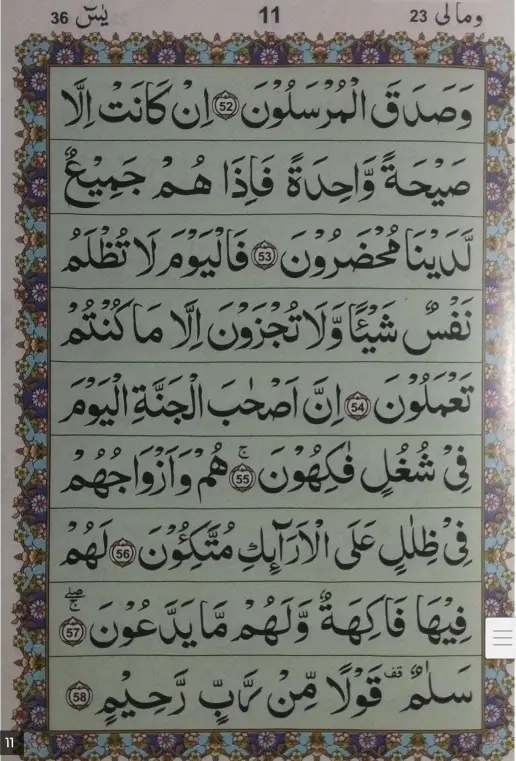 ومالی 23
11
یٰسٓ 36
وَصَدَقَ الْمُرْسَلُوْنَ 52 اِنْ كَانَتْ اِلَّا
صَيْحَةً وَّاحِدَةً فَاِذَا هُمْ جَمِيْعٌ
لَّدَيْنَا مُحْضَرُوْنَ 53 فَالْيَوْمَ لَا تُظْلَمُ
نَفْسٌ شَيْئًا وَّلَا تُجْزَوْنَ اِلَّا مَا كُنْتُمْ
تَعْمَلُوْنَ 54 اِنَّ اَصْحٰبَ الْجَنَّةِ الْيَوْمَ
فِيْ شُغُلٍ فٰكِهُوْنَ ۚ 55 هُمْ وَاَزْوَاجُهُمْ
فِيْ ظِلٰلٍ عَلَى الْاَرَآئِكِ مُتَّكِئُوْنَ 56 لَهُمْ
فِيْهَا فَاكِهَةٌ وَّلَهُمْ مَّا يَدَّعُوْنَ ۖۚ 57
سَلٰمٌ قف قَوْلًا مِّنْ رَّبٍّ رَّحِيْمٍ 58
11